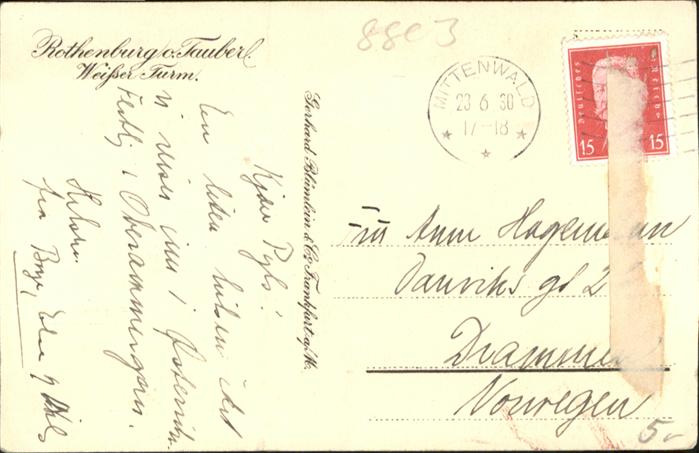 Rothenburg o. Tauber.
Weißer Turm.
88c3
MITTENWALD
23 6 30
17-18
Deutsches Reich
15 15
Gerhard Blümlein & Co., Frankfurt a/M.
Kjære
En liten hilsen idet
vi reiser inn i Østerrike.
i Oberammergau.
Hilsen
fra
Anna Hagemann
Danviks gt 2
Drammen
Norwegen
5,-